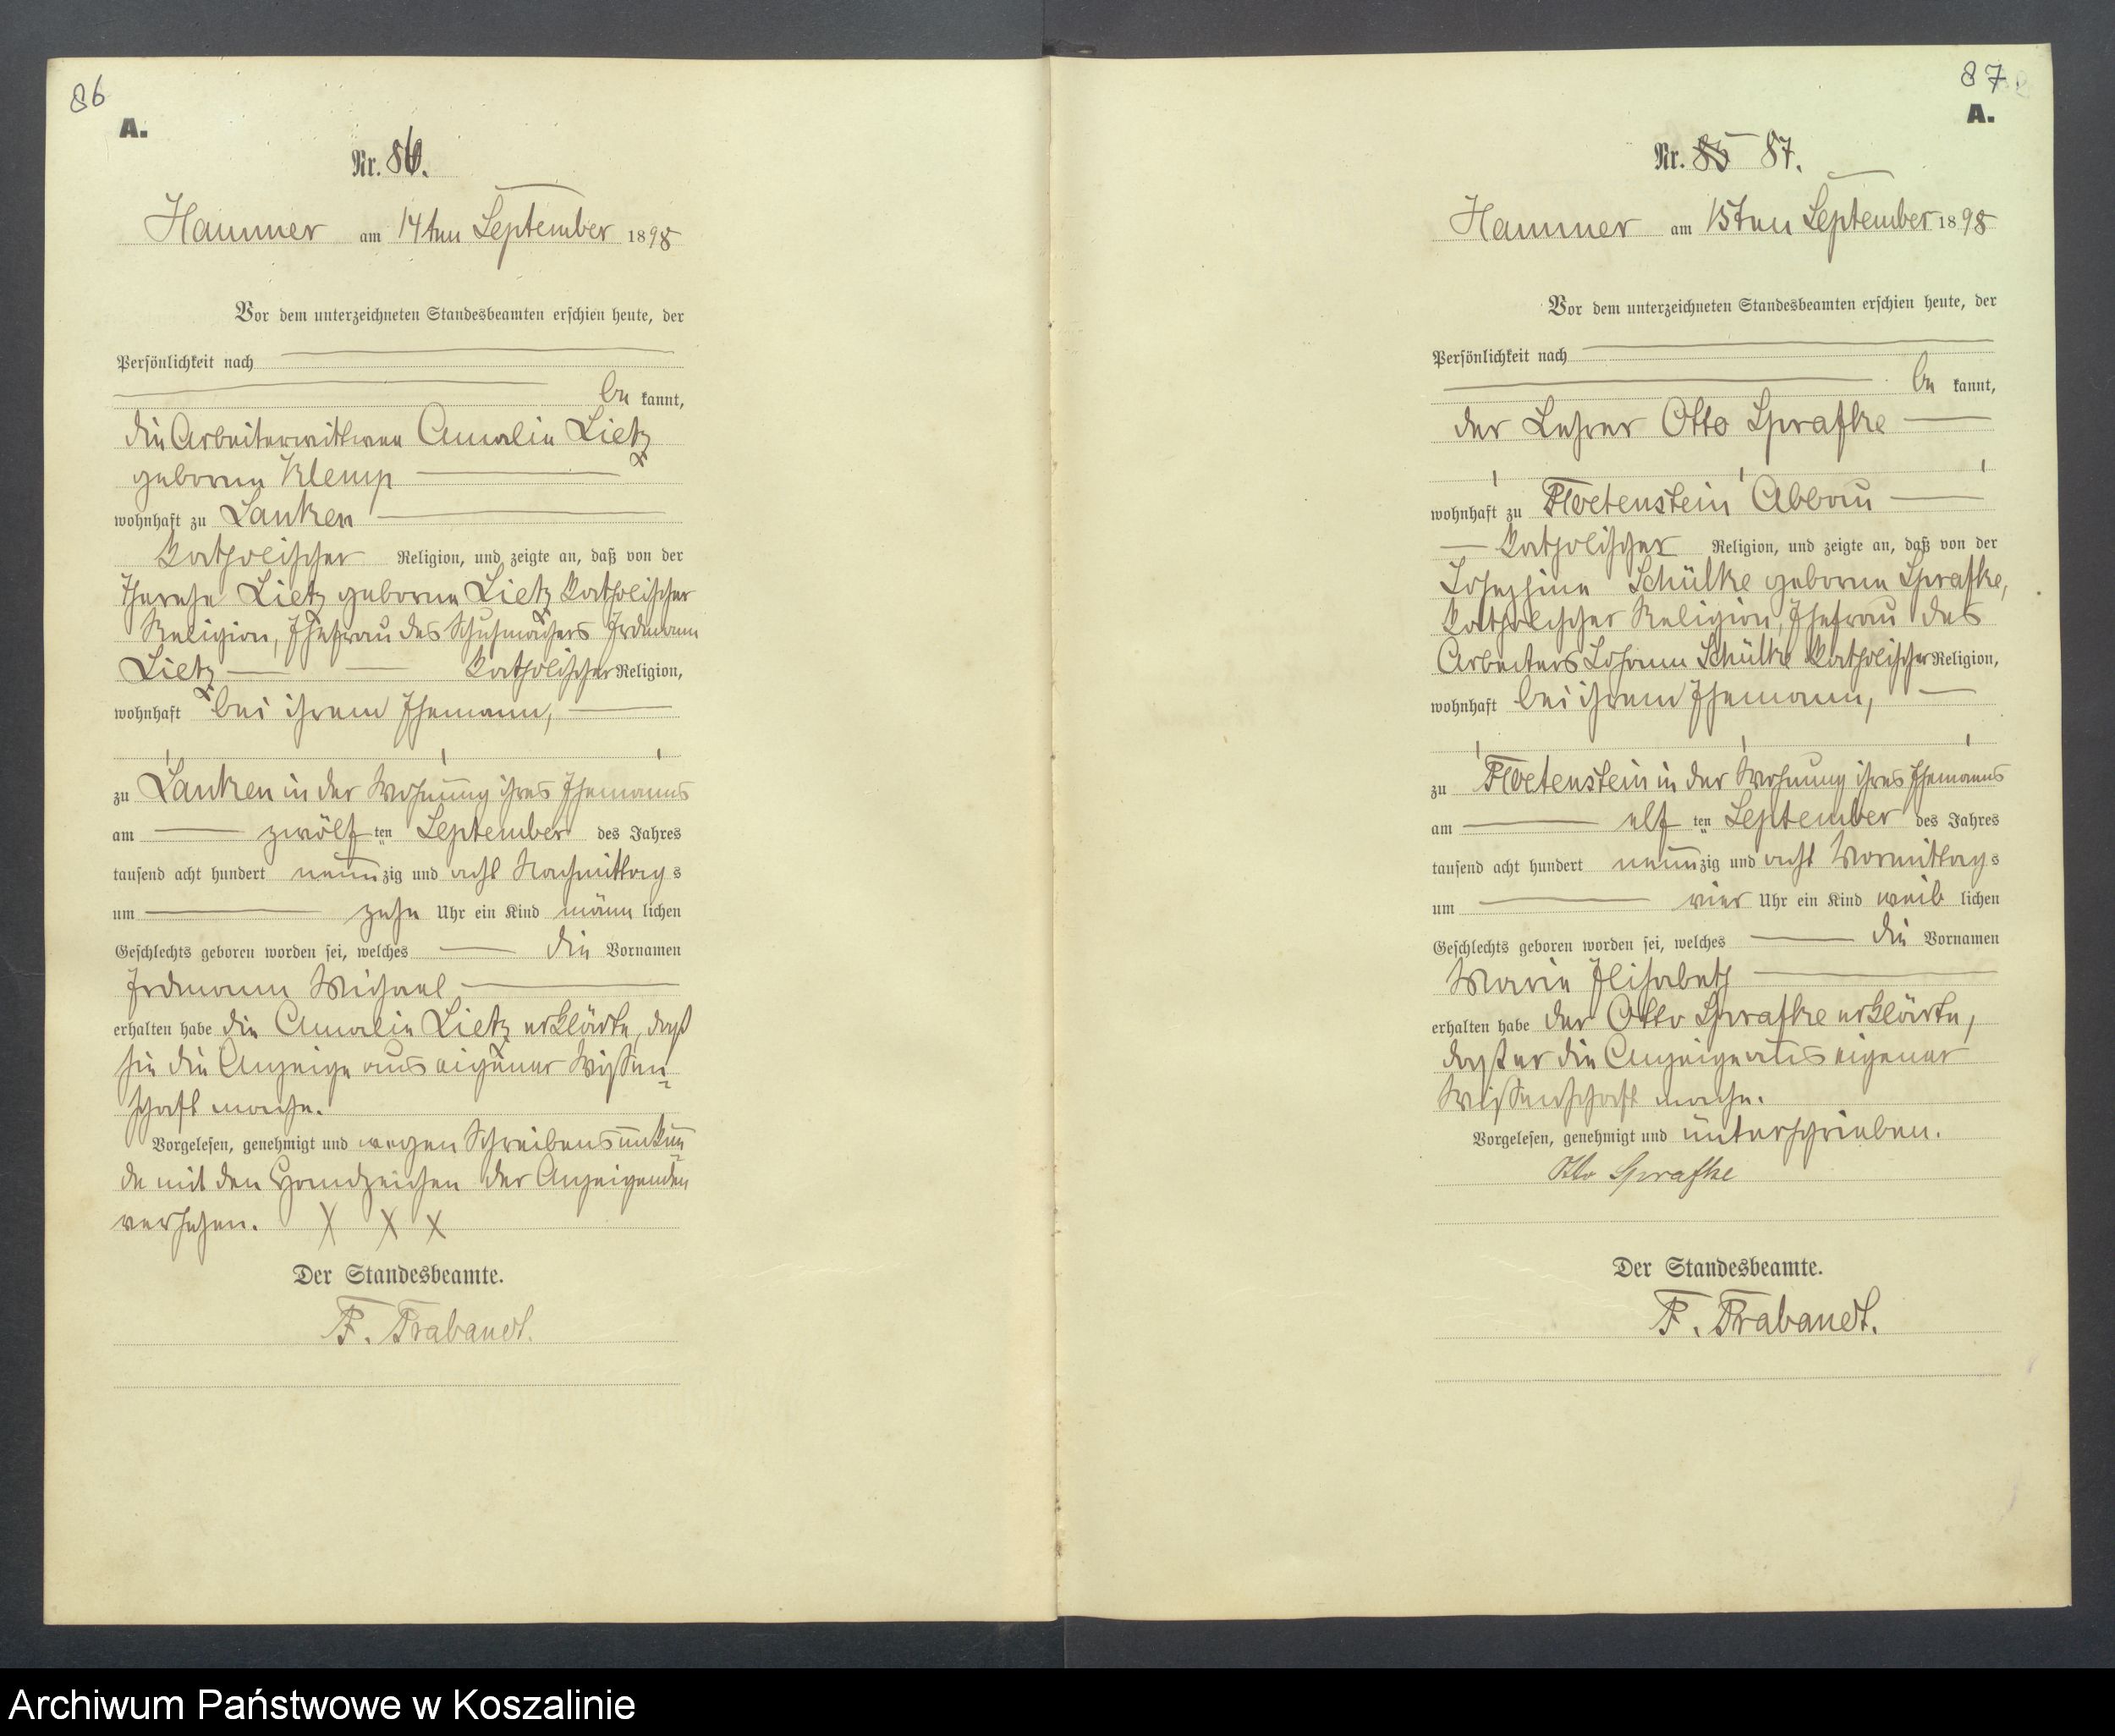 86
A.
Nr. 86.
Hammer am 14ten September 1898
Vor dem unterzeichneten Standesbeamten erschien heute, der
Persönlichkeit nach
be kannt,
die Arbeiterwittwee Amalie Lietz
geborene Klemp
wohnhaft zu Lanken
katholischer Religion, und zeigte an, daß von der
Therese Lietz geborene Lietz katholischer
Religion, Ehefrau des Schuhmachers Erdmann
Lietz katholischer Religion,
wohnhaft bei ihrem Ehemann,
zu Lanken in der Wohnung ihres Ehemanns
am zwölf ten September des Jahres
tausend acht hundert neunzig und acht Nachmittags
um zehn Uhr ein Kind männlichen
Geschlechts geboren worden sei, welches die Vornamen
Erdmann Michael
erhalten habe die Amalie Lietz erklärte, daß
sie die Anzeige aus eigener Wissen-
schaft mache.
Vorgelesen, genehmigt und wegen Schreibensunkun-
de mit den Handzeichen der Anzeigenden
versehen. X X X
Der Standesbeamte.
F. Trabandt.
87
A.
Nr. 85 87.
Hammer am 15ten September 1898
Vor dem unterzeichneten Standesbeamten erschien heute, der
Persönlichkeit nach
be kannt,
der Lehrer Otto Sprafke
wohnhaft zu Floetenstein Abbau
katholischer Religion, und zeigte an, daß von der
Josephine Schülke geborene Sprafke,
katholischer Religion, Ehefrau des
Arbeiters Johann Schülke katholischer Religion,
wohnhaft bei ihrem Ehemann,
zu Floetenstein in der Wohnung ihres Ehemanns
am elf ten September des Jahres
tausend acht hundert neunzig und acht Vormittags
um vier Uhr ein Kind weiblichen
Geschlechts geboren worden sei, welches die Vornamen
Marie Elisabeth
erhalten habe der Otto Sprafke erklärte,
daß er die Anzeige aus eigener
Wissenschaft mache.
Vorgelesen, genehmigt und unterschrieben.
Otto Sprafke
Der Standesbeamte.
F. Trabandt.
Archiwum Państwowe w Koszalinie